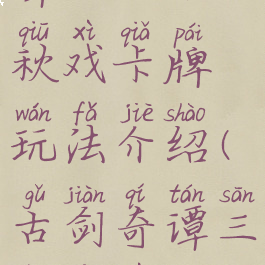 qiū xì qiǎ pái
秋戏卡牌
wán fǎ jiè shào
玩法介绍(
gǔ jiàn qí tán sān
古剑奇谭三